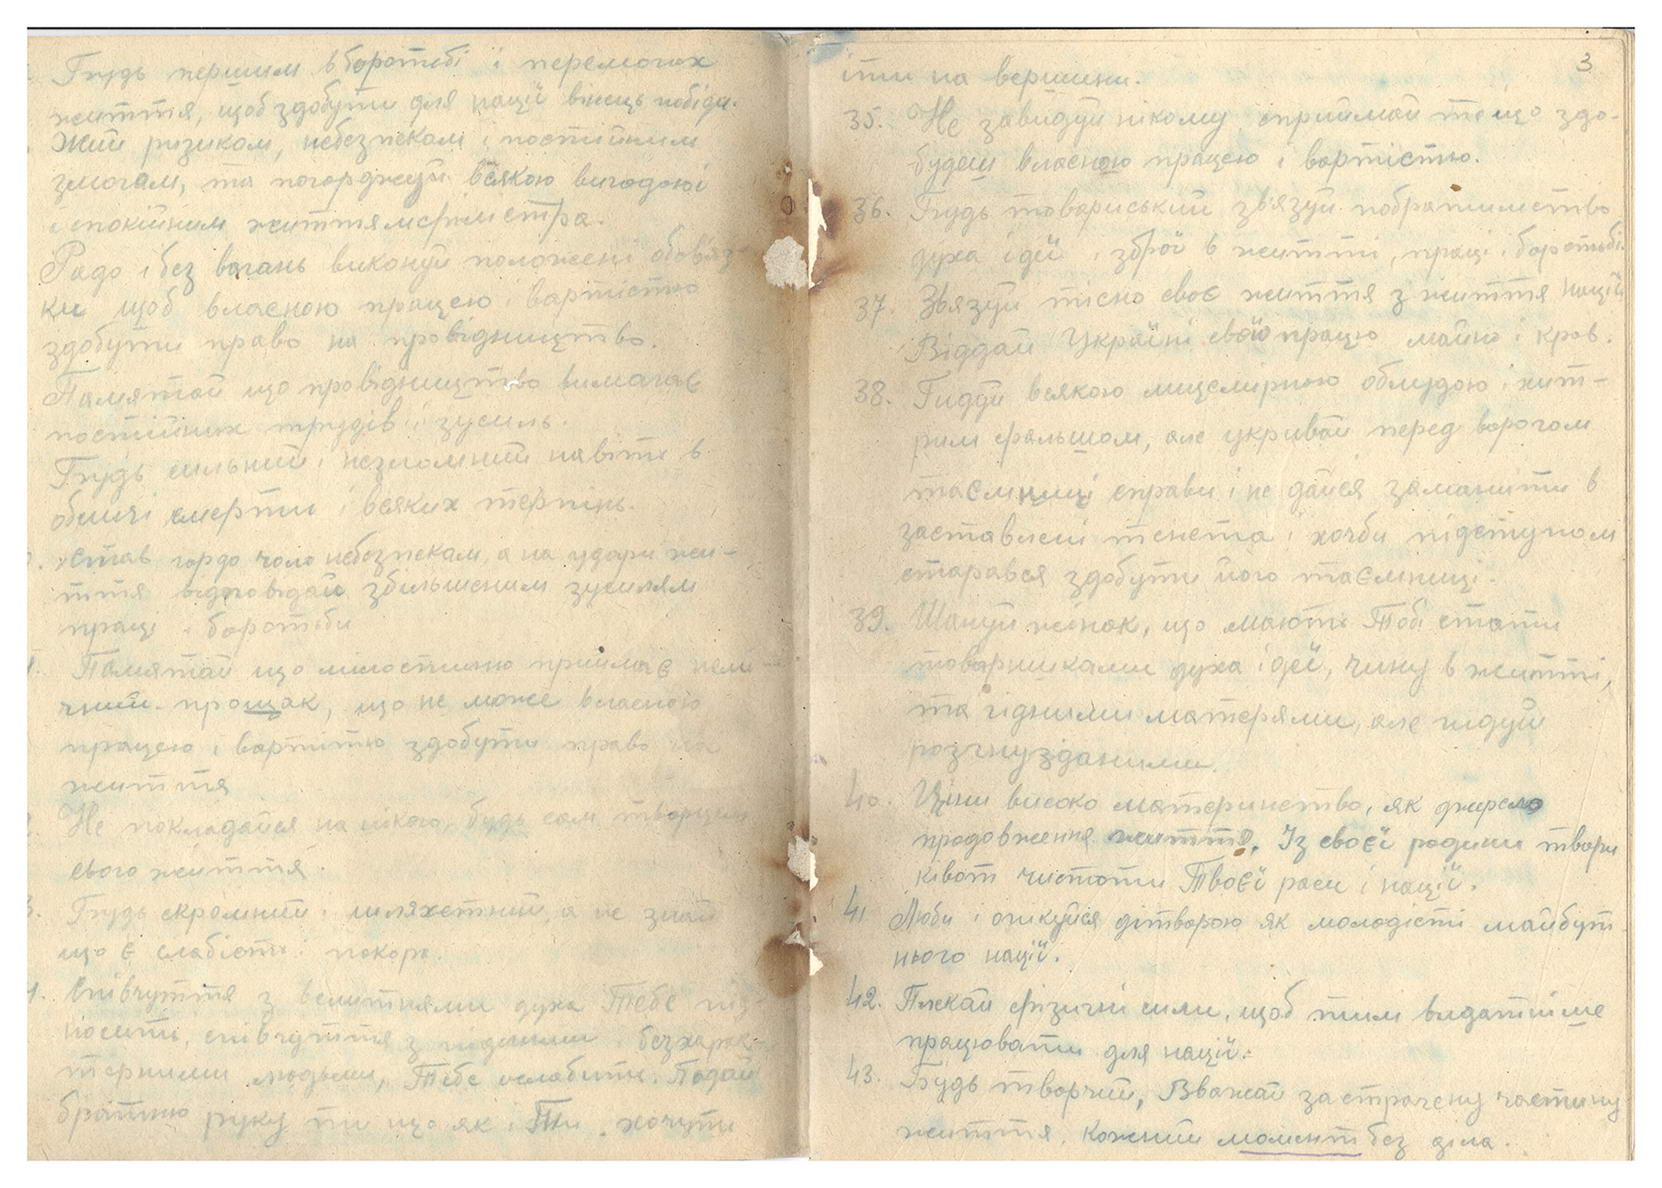 Будь першим в боротьбі і перемогах
життя, щоб здобути для нації вінець побіди.
Жий ризиком, небезпекам і постійним
змогам, та погорджуй всякою вигодою і
і спокійним життям филистра.
Радо і без вагань виконуй положені обовяз-
ки щоб власною працею і вартістю
здобути право на провідництво.
Памятай що провідництво вимагає
постійних трудів і зусиль.
Будь сильний і незломний навіть в
обличі смерти і всяких терпінь.
Став гордо чоло небезпекам, а на удари жи-
ття відповідай збільшеним зусилям
праці і боротьби
Памятай що милостиню приймає
прощак, що не може власною
працею і вартітю здобути право на
життя
Не покладайся на нікого, будь сам творцем
свого життя.
Будь скромний і шляхетний, а не знай
що є слабість і покора.
Співчуття з велитнями духа Тебе під-
носить, співчуття з підлими і безхарак-
терними людьми, Тебе ослабить. Подай
братню руку ти що як і Ти, хочуть
3
іти на вершини.
35. Не завидуй нікому сприймай те що здо-
будеш власною працею і вартістю.
36. Будь товариський звязуй побратимство
духа ідеї і зброї в житті, праці і боротьбі.
37. Звязуй тісно своє життя з життя нації
Віддай Україні свою працю майно і кров.
38. Гидди всякою лицемірною облудою і хит-
рим фальшом, але укривай перед ворогом
таємниці справи і не дайся заманити в
заставлені тенета і хочби підступом
старався здобути його таємниці.
39. Шануй жінок, що мають Тобі стати
товаришками духа ідеї, чину в житті,
та гідними матерями, але гидуй
розгнузданими.
40. Ціни високо материнство, як джерело
продовження життя. Із своєї родини твори
ківот чистоти Твоєї раси і нації.
41 Люби і опікуйся дітворою як молодісті майбут-
нього нації.
42. Плекай фізичні сили, щоб тим видатніше
працювати для нації.
43. Будь творчий, Вважай за страчену частину
життя, кожний момент без діла.